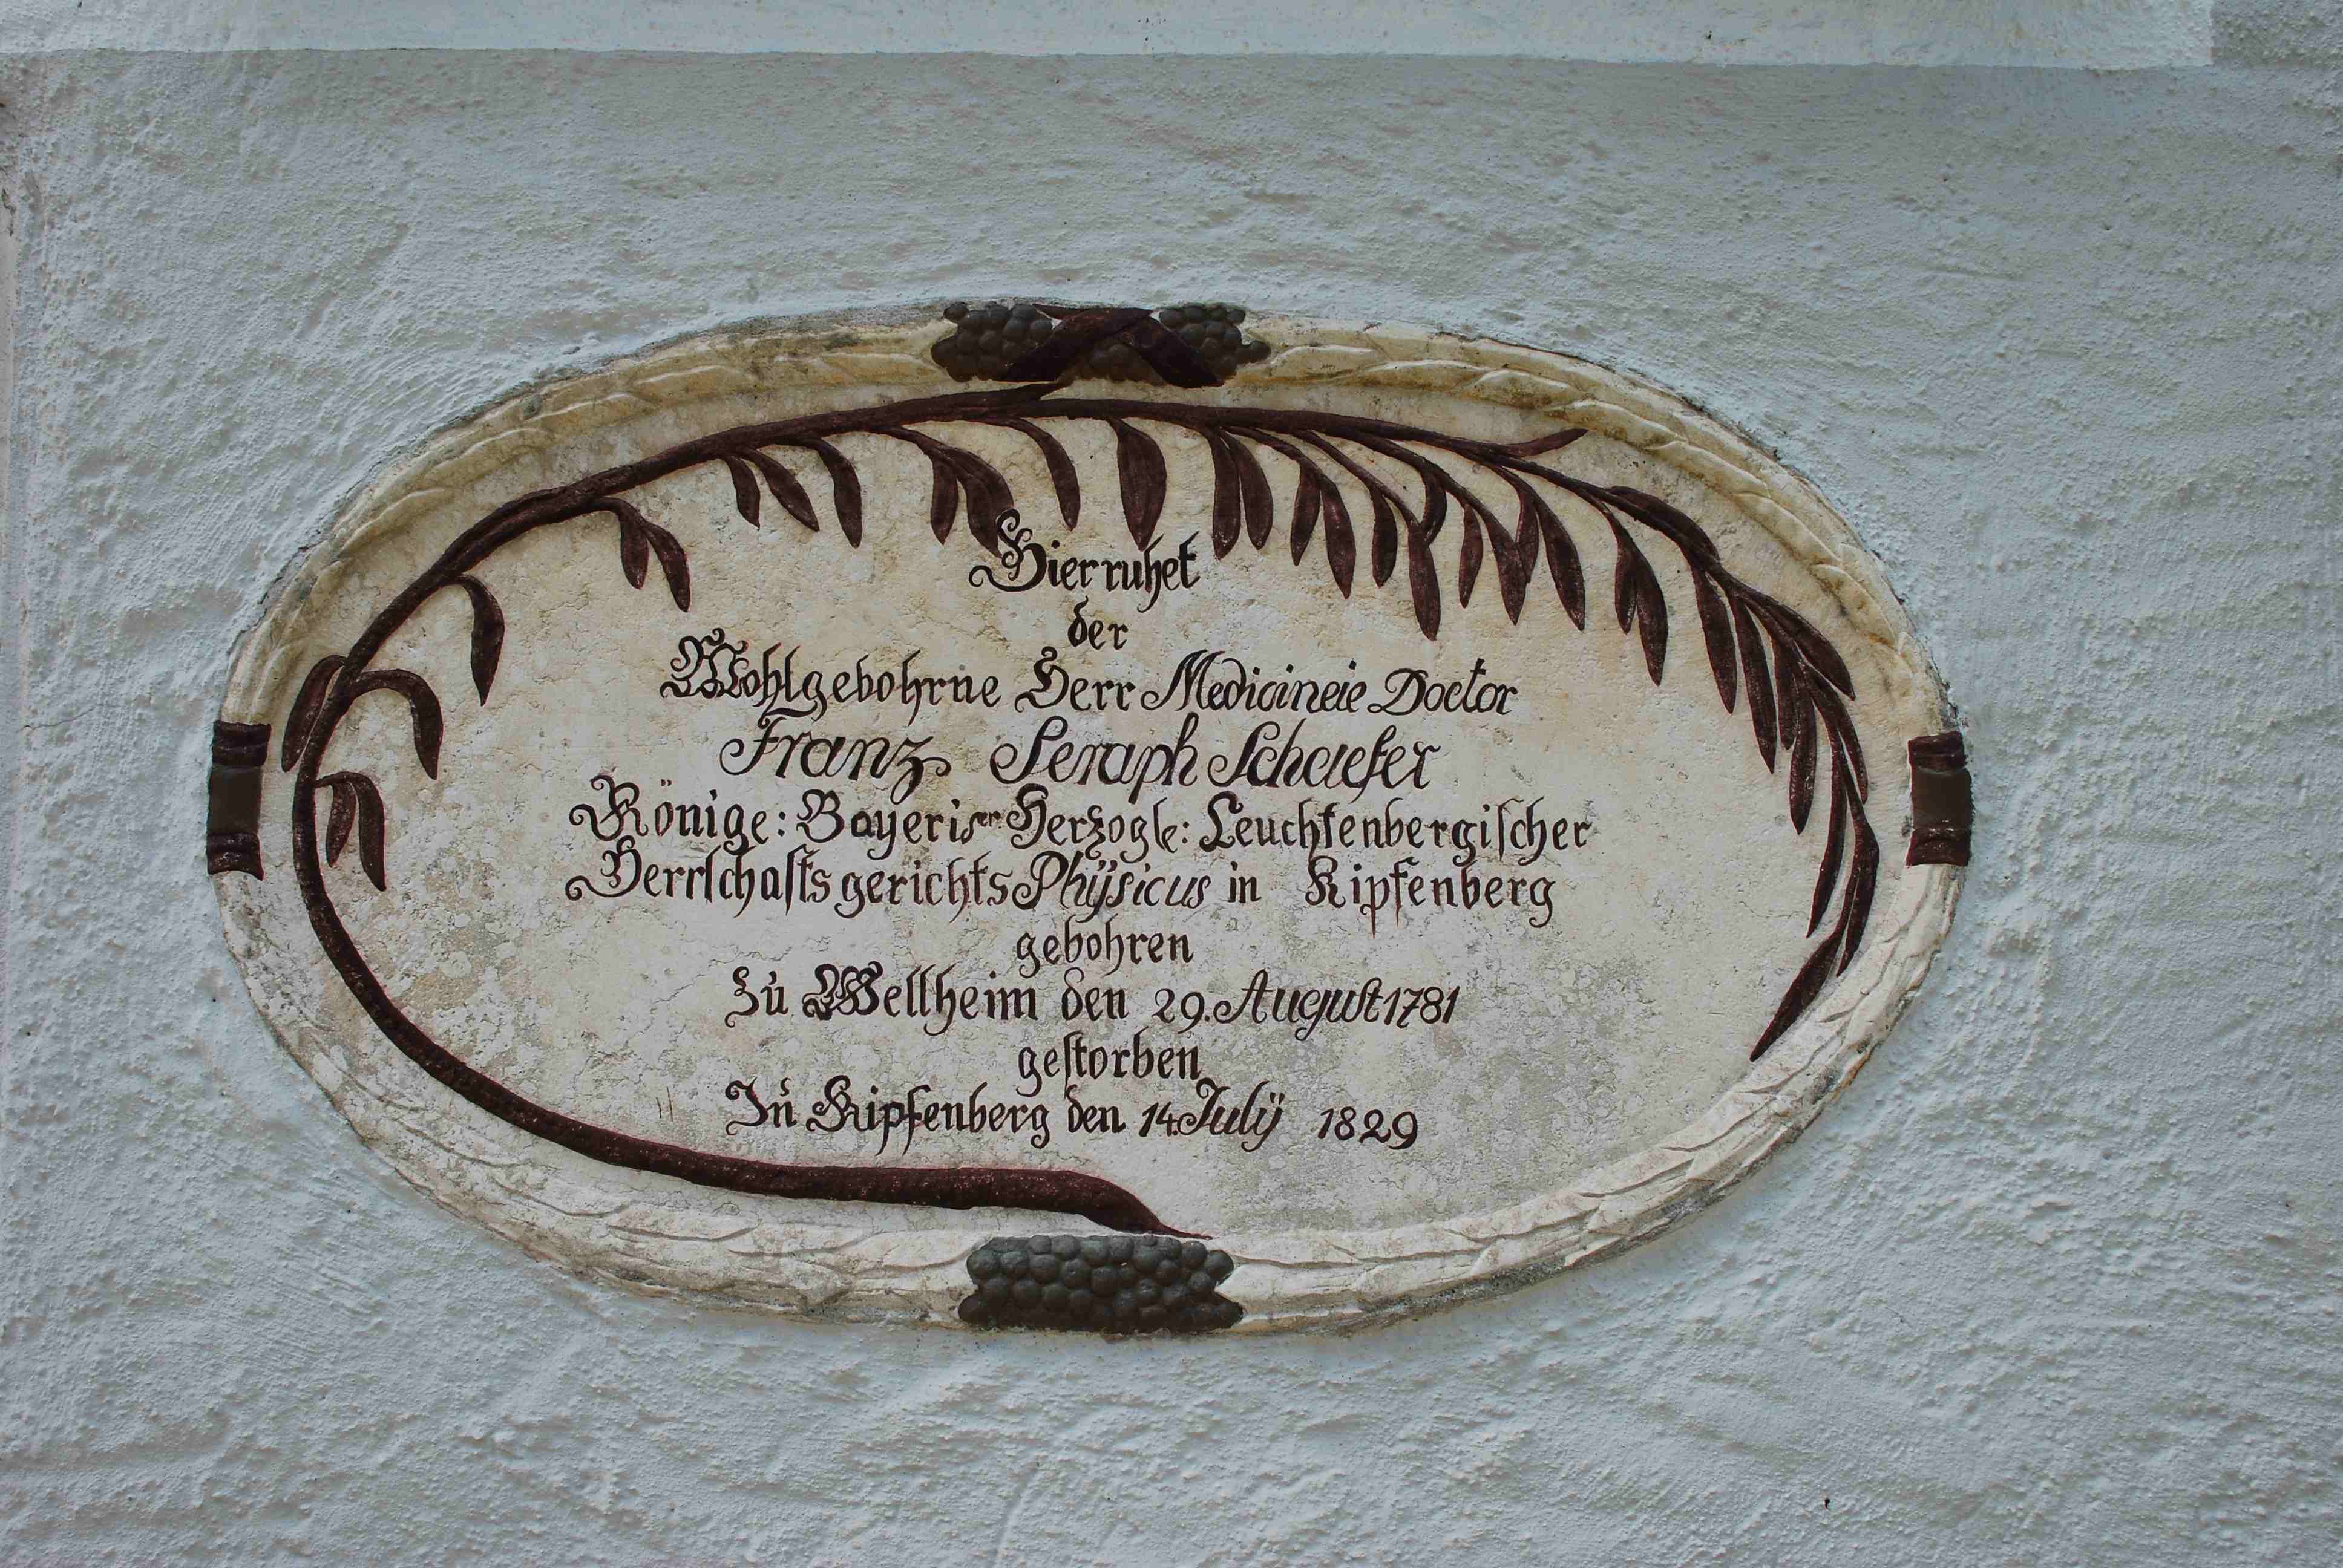 Hier ruhet
der
Wohlgebohrne Herr Medicineie Doctor
Franz Seraph Schaefer
Könige: Bayeriser Herzogle: Leuchtenbergiſcher
Herrſchaftsgerichts Phÿsicus in Kipfenberg
gebohren
Zu Wellheim den 29. August 1781
geſtorben
Zu Kipfenberg den 14. Julÿ 1829